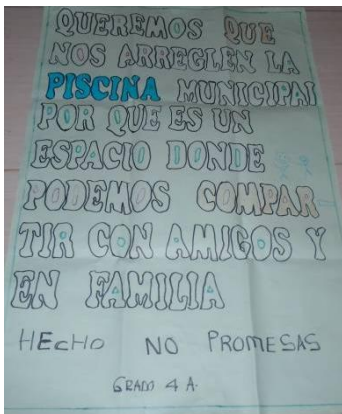 QUEREMOS QUE
NOS ARREGLEN LA
PISCINA MUNICIPAL
POR QUE ES UN
ESPACIO DONDE
PODEMOS COMPAR
TIR CON AMIGOS Y
EN FAMILIA
HECHO NO PROMESAS
GRADO 4 A.